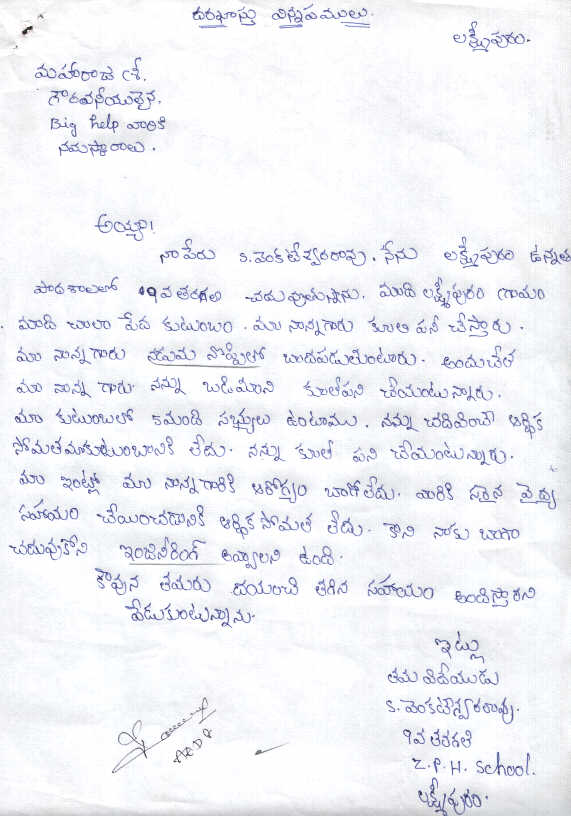 దరఖాస్తు విన్నపములు.
లక్ష్మీపురం.
మహారాజ శ్రీ.
గౌరవనీయులైన.
Big help వారికి
నమస్కారాలు.
అయ్యా!
నా పేరు S. వెంకటేశ్వరరావు. నేను లక్ష్మీపురం ఉన్నత
పాఠశాలలో 9వ తరగతి చదువుతున్నాను. మాది లక్ష్మీపురం గ్రామం
మాది చాలా పేద కుటుంబం. మా నాన్నగారు కూలి పని చేస్తారు.
మా నాన్నగారు నడుము నొప్పిలో బాదపడుతుంటారు. అందుచేత
మా నాన్న గారు నన్ను బడిమాని కూలిపని చేయంటున్నారు.
మా కుటుంబలో 6మంది సభ్యులు ఉంటాము. నన్ను చదివించే ఆర్థిక
సోమతమాకుటుంబానికి లేదు. నన్ను కూలి పని చేయంటున్నారు.
మా ఇంట్లో మా నాన్నగారికి ఆరోగ్యం బాగోలేదు. వారికి సరైన వైద్య
సహాయం చేయించడానికి ఆర్థిక సోమత లేదు. కాని నాకు బాగా
చదువుకోని ఇంజినీరింగ్ అవ్వాలని ఉంది.
కావున తమరు దయంచి తగిన సహాయం అందిస్తారని
వేడుకుంటున్నాను.
ఇట్లు
తమ విదేయుడు
S. వెంకటేశ్వరరావు.
9వ తరగతి
Z.P.H. School.
లక్ష్మీపురం.